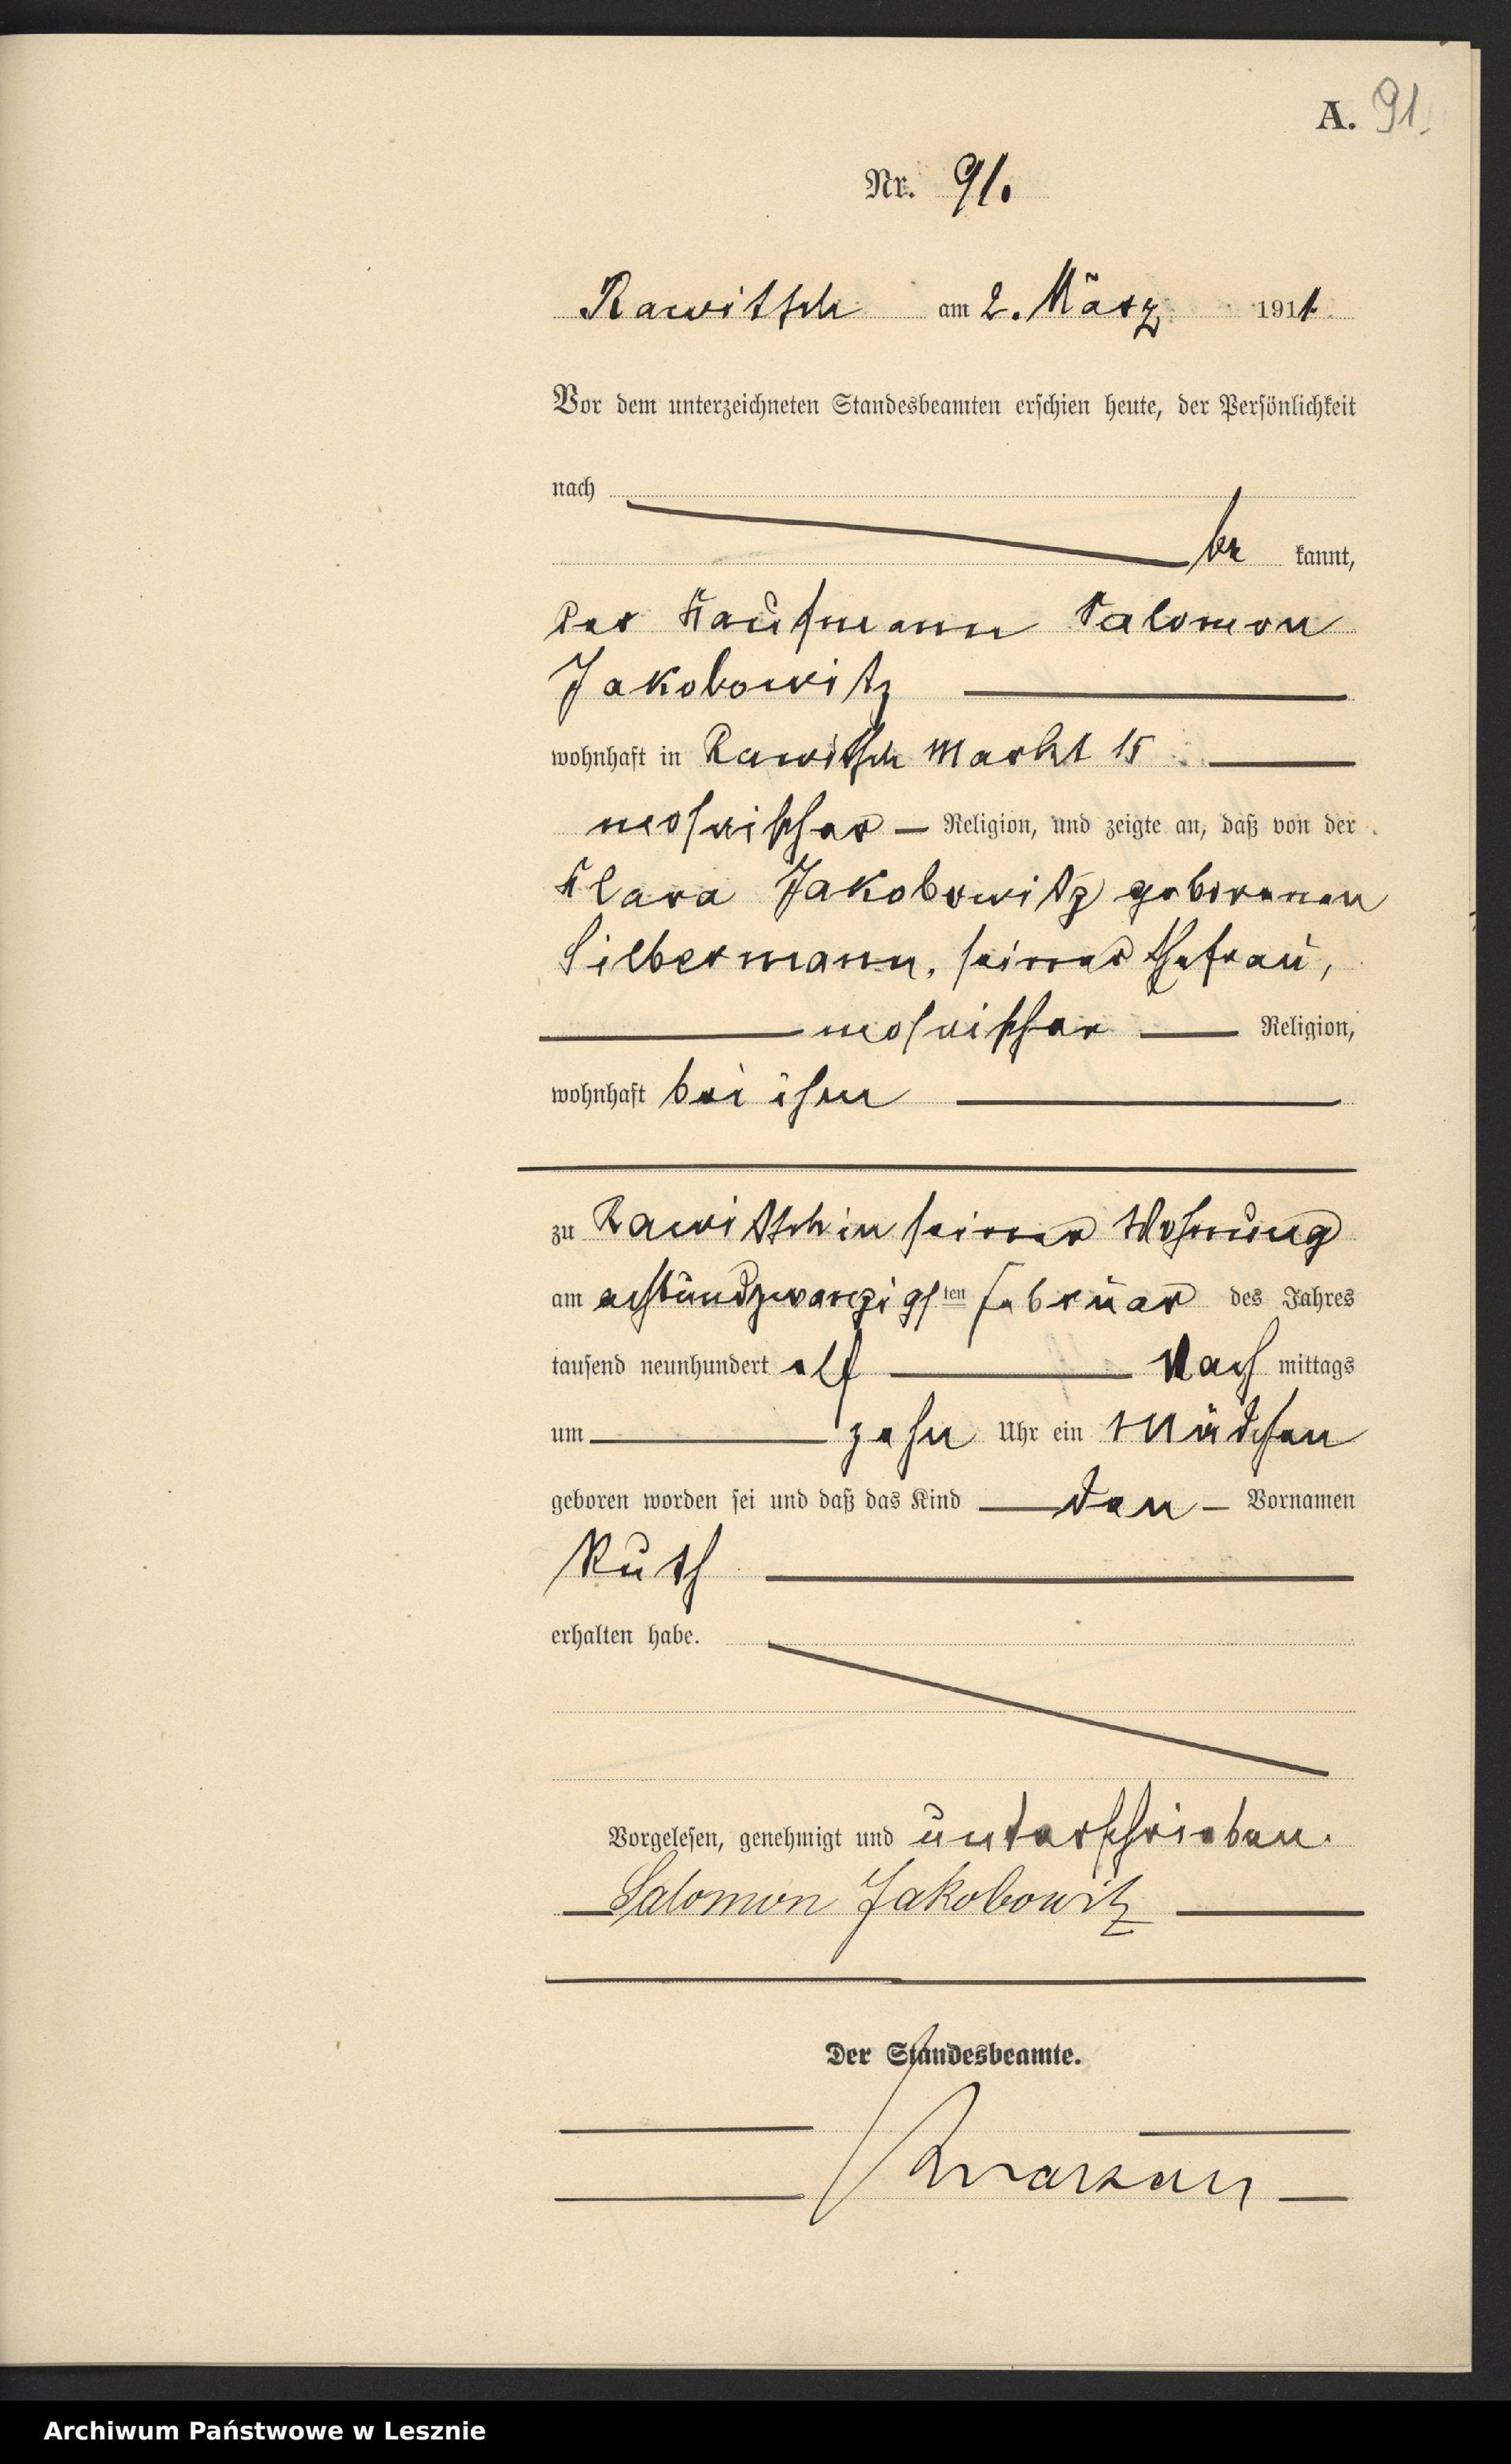 A. 91.
Nr. 91.
Rawitsch am 2. März 1911.
Vor dem unterzeichneten Standesbeamten erschien heute, der Persönlichkeit
nach
be kannt,
der Kaufmann Salomon
Jakobowitz
wohnhaft in Rawitsch Markt 15
mosaischer Religion, und zeigte an, daß von der
Klara Jakobowitz geborenen
Silbermann, seiner Ehefrau,
mosaischer Religion,
wohnhaft bei ihm
zu Rawitsch in seiner Wohnung
am achtundzwanzigsten Februar des Jahres
tausend neunhundert elf Nach mittags
um zehn Uhr ein Mädchen
geboren worden sei und daß das Kind den Vornamen
Ruth
erhalten habe.
Vorgelesen, genehmigt und unterschrieben.
Salomon Jakobowitz
Der Standesbeamte.
Archiwum Państwowe w Lesznie